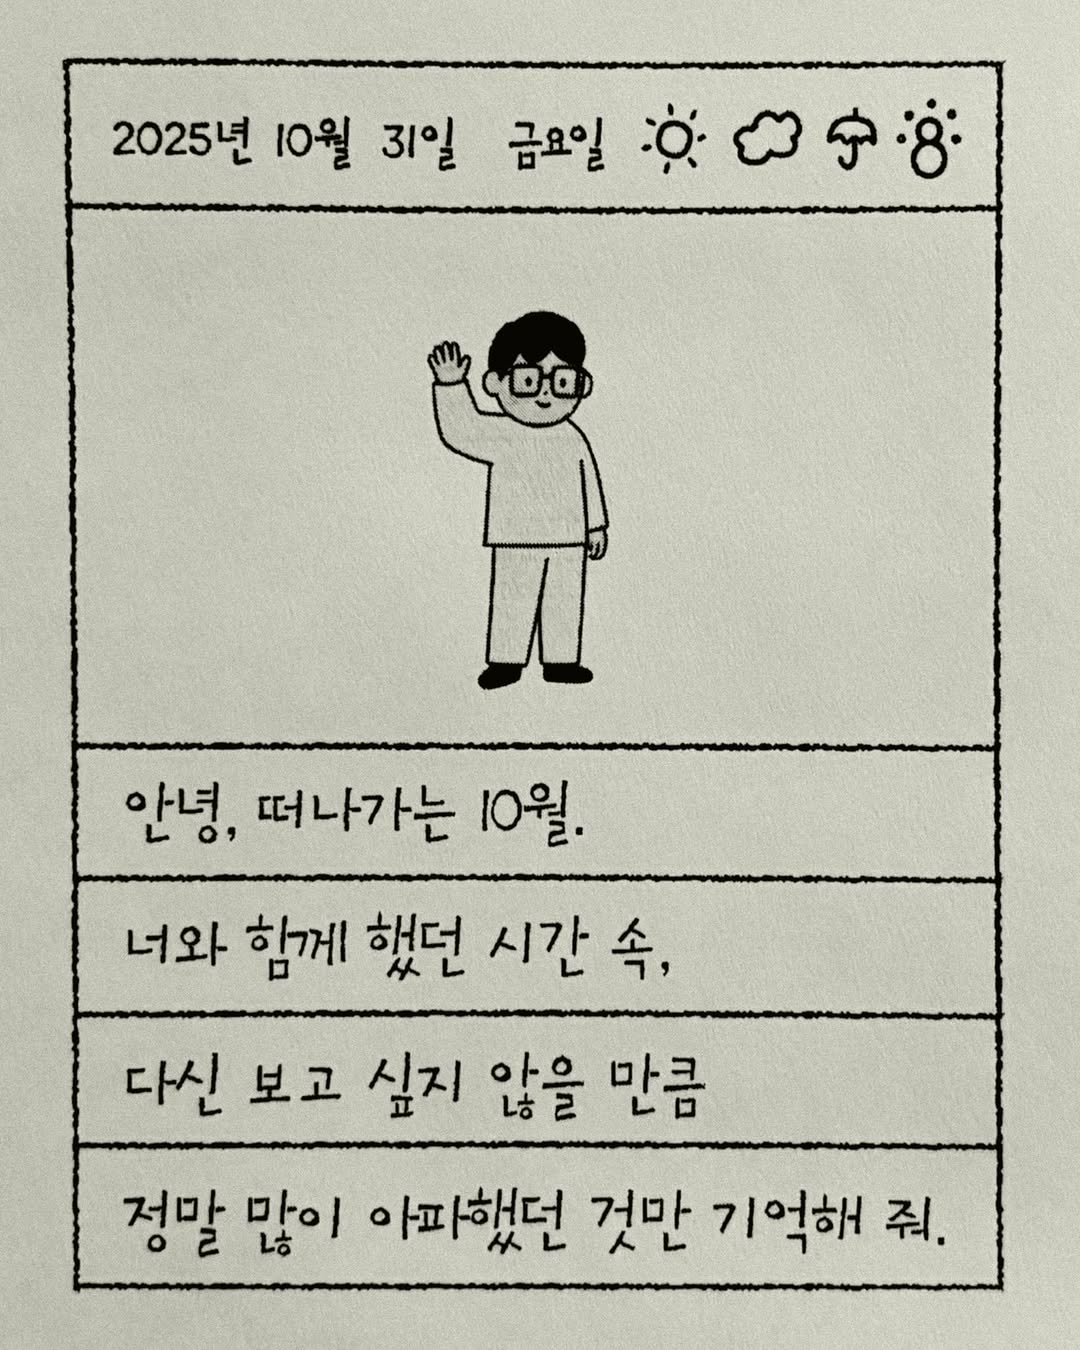 2025년 10월 31일 금요일
안녕, 떠나가는 10월.
너와 함께 했던 시간 속,
다신 보고 싶지 않을 만큼
정말 많이 아파했던 것만 기억해 줘.